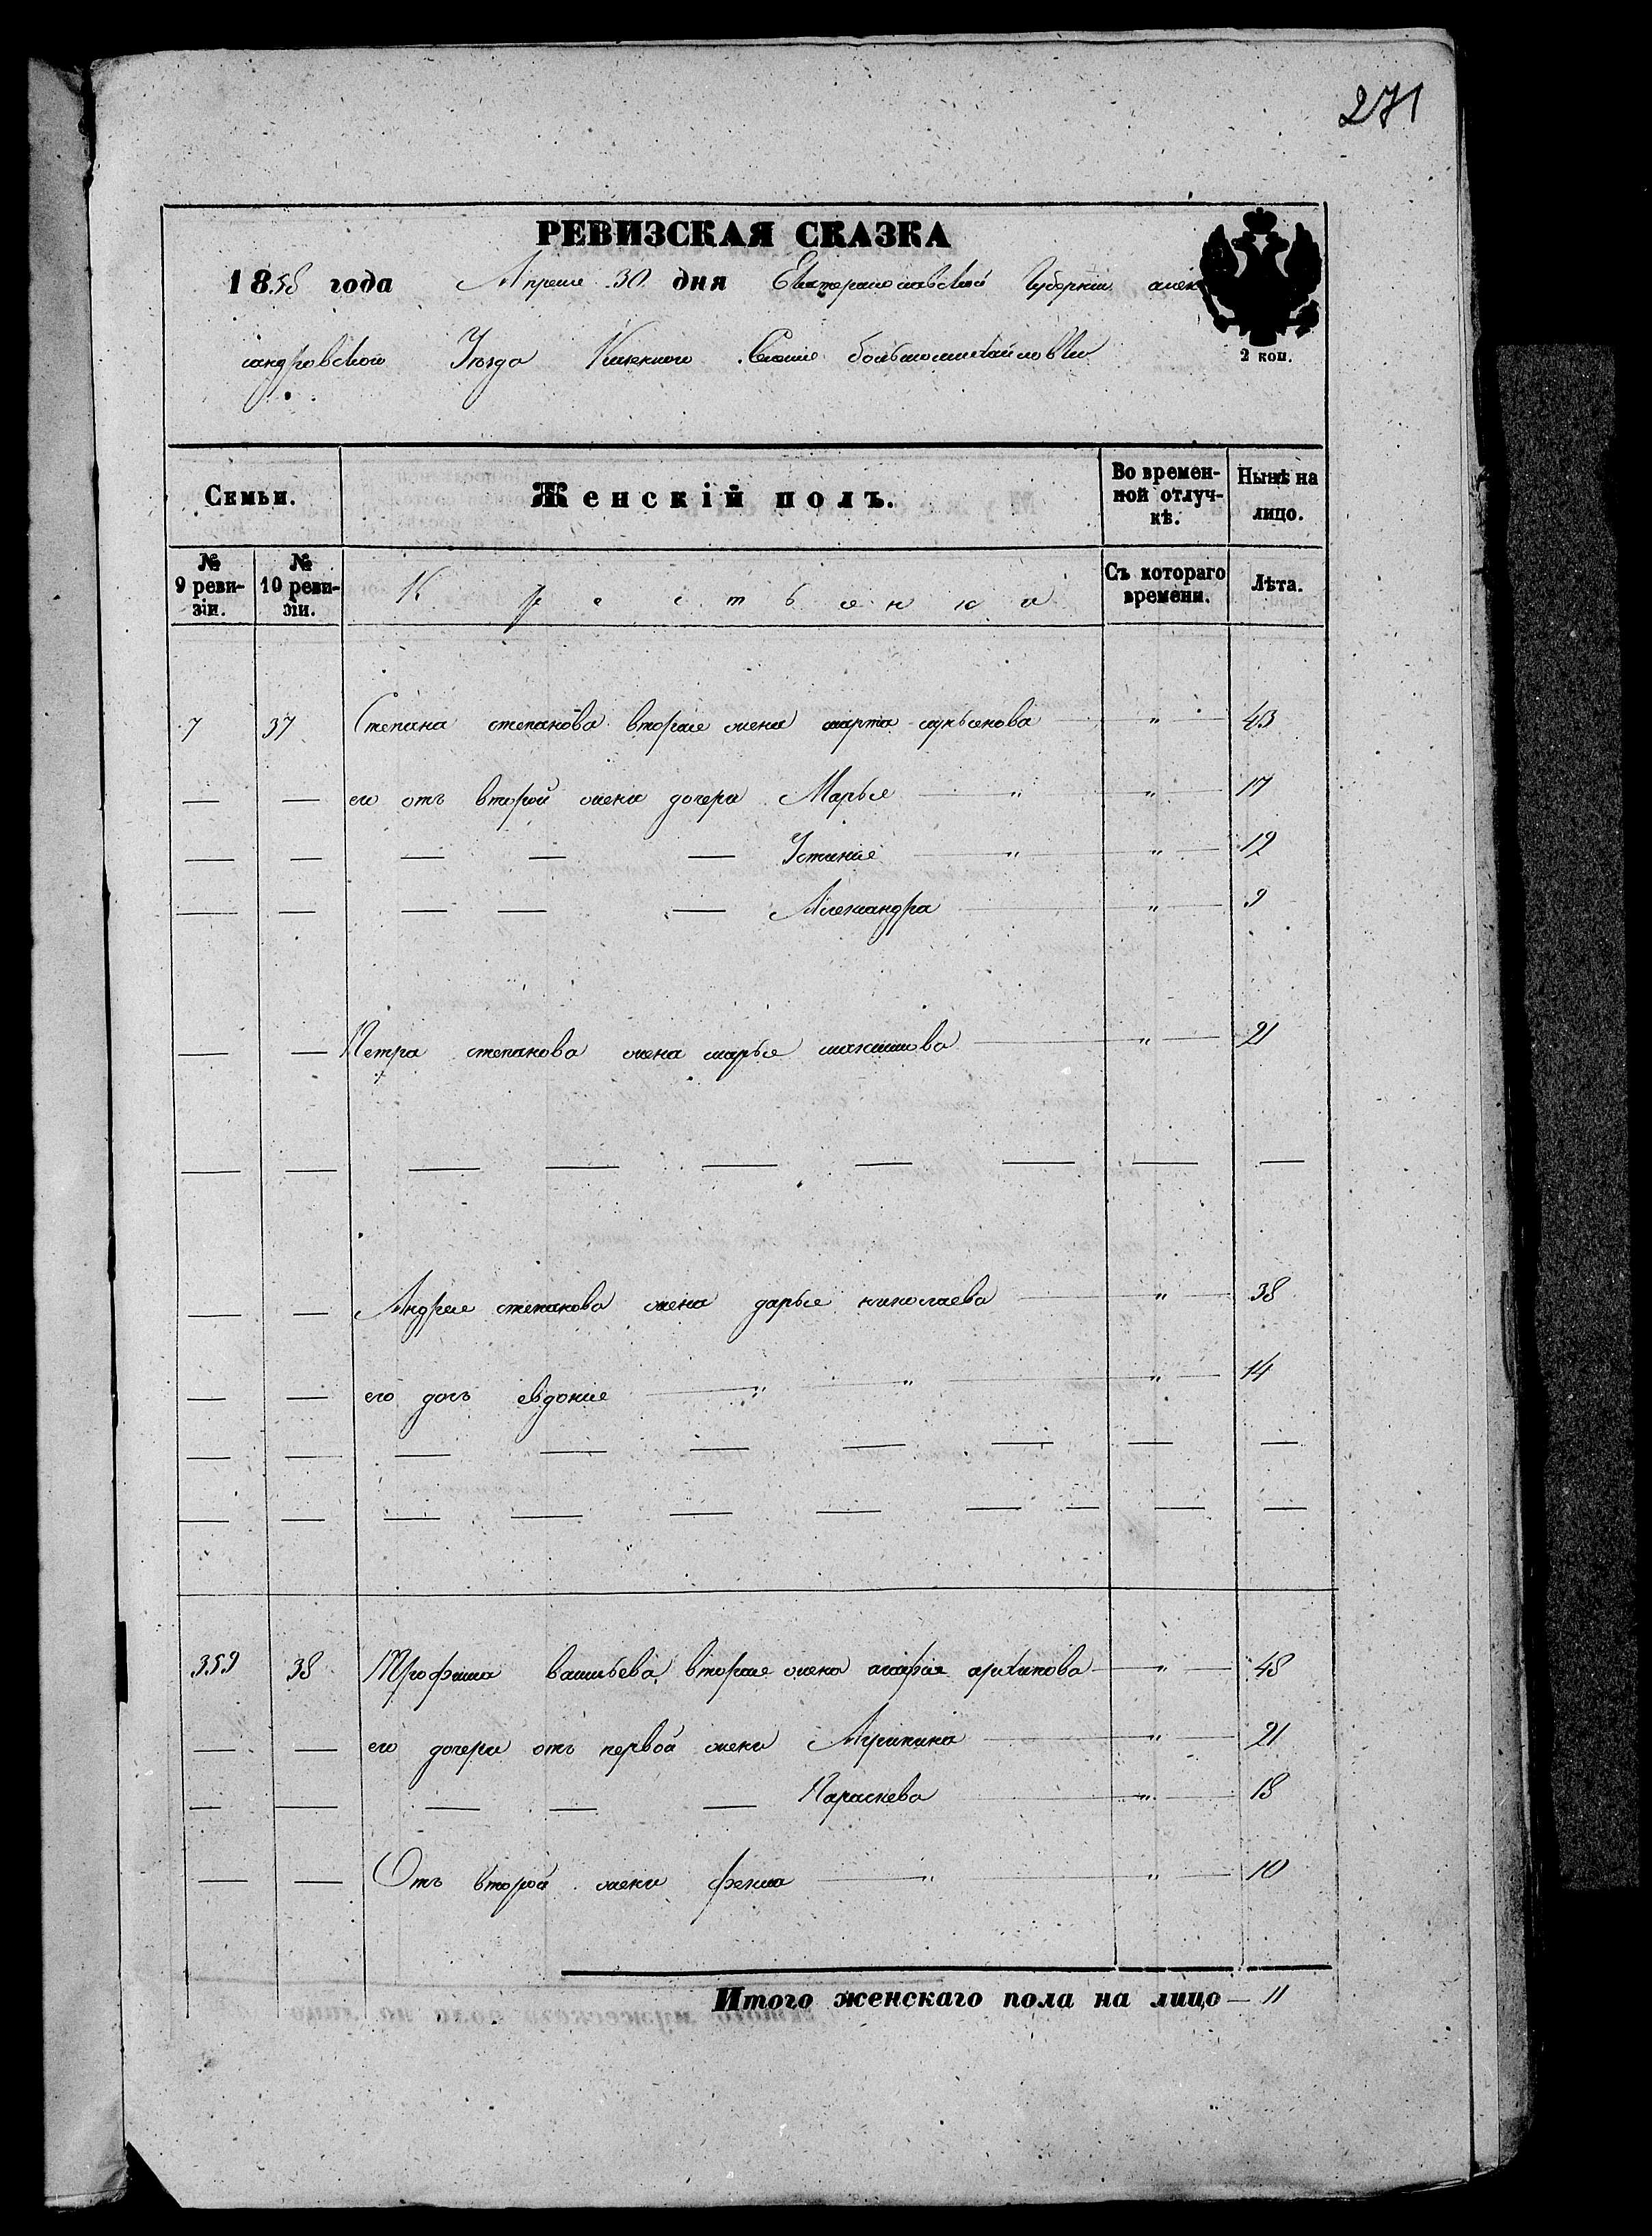 271
РЕВИЗСКАЯ СКАЗКА
1858 года Апреля 30 дня Екатеринославской Губерніи алек
сандровского Уезда Казенного Селения большомихайловки
2 коп.
Семьи. Женскій полъ. Во времен-ной отлуч-кѣ. Нынѣ на лицо.
№ 9 реви-зіи. № 10 реви-зіи. Крестьянки Съ котораго времени. Лѣта.
7 37 Степана степанова вторая жена марта " 43
— — его отъ второй жены дочери Марья " " 17
— — — — — Устиния " " 12
— — — — — Александра " 9
— — Петра степанова жена марья максимова " 21
— — — — — — — — —
— — Андрея степанова жена дарья николаева " 38
— — его дочь евдокия " " " 14
— — — — — — — — —
— — — — — — — — — —
359 38 Трофима васильева вторая жена агафия архипова " 48
— — его дочери отъ первой жены Агрипина " 21
— — — — — Параскева " 18
— — Отъ второй жены фекла " " 10
Итого женскаго пола на лицо — 11